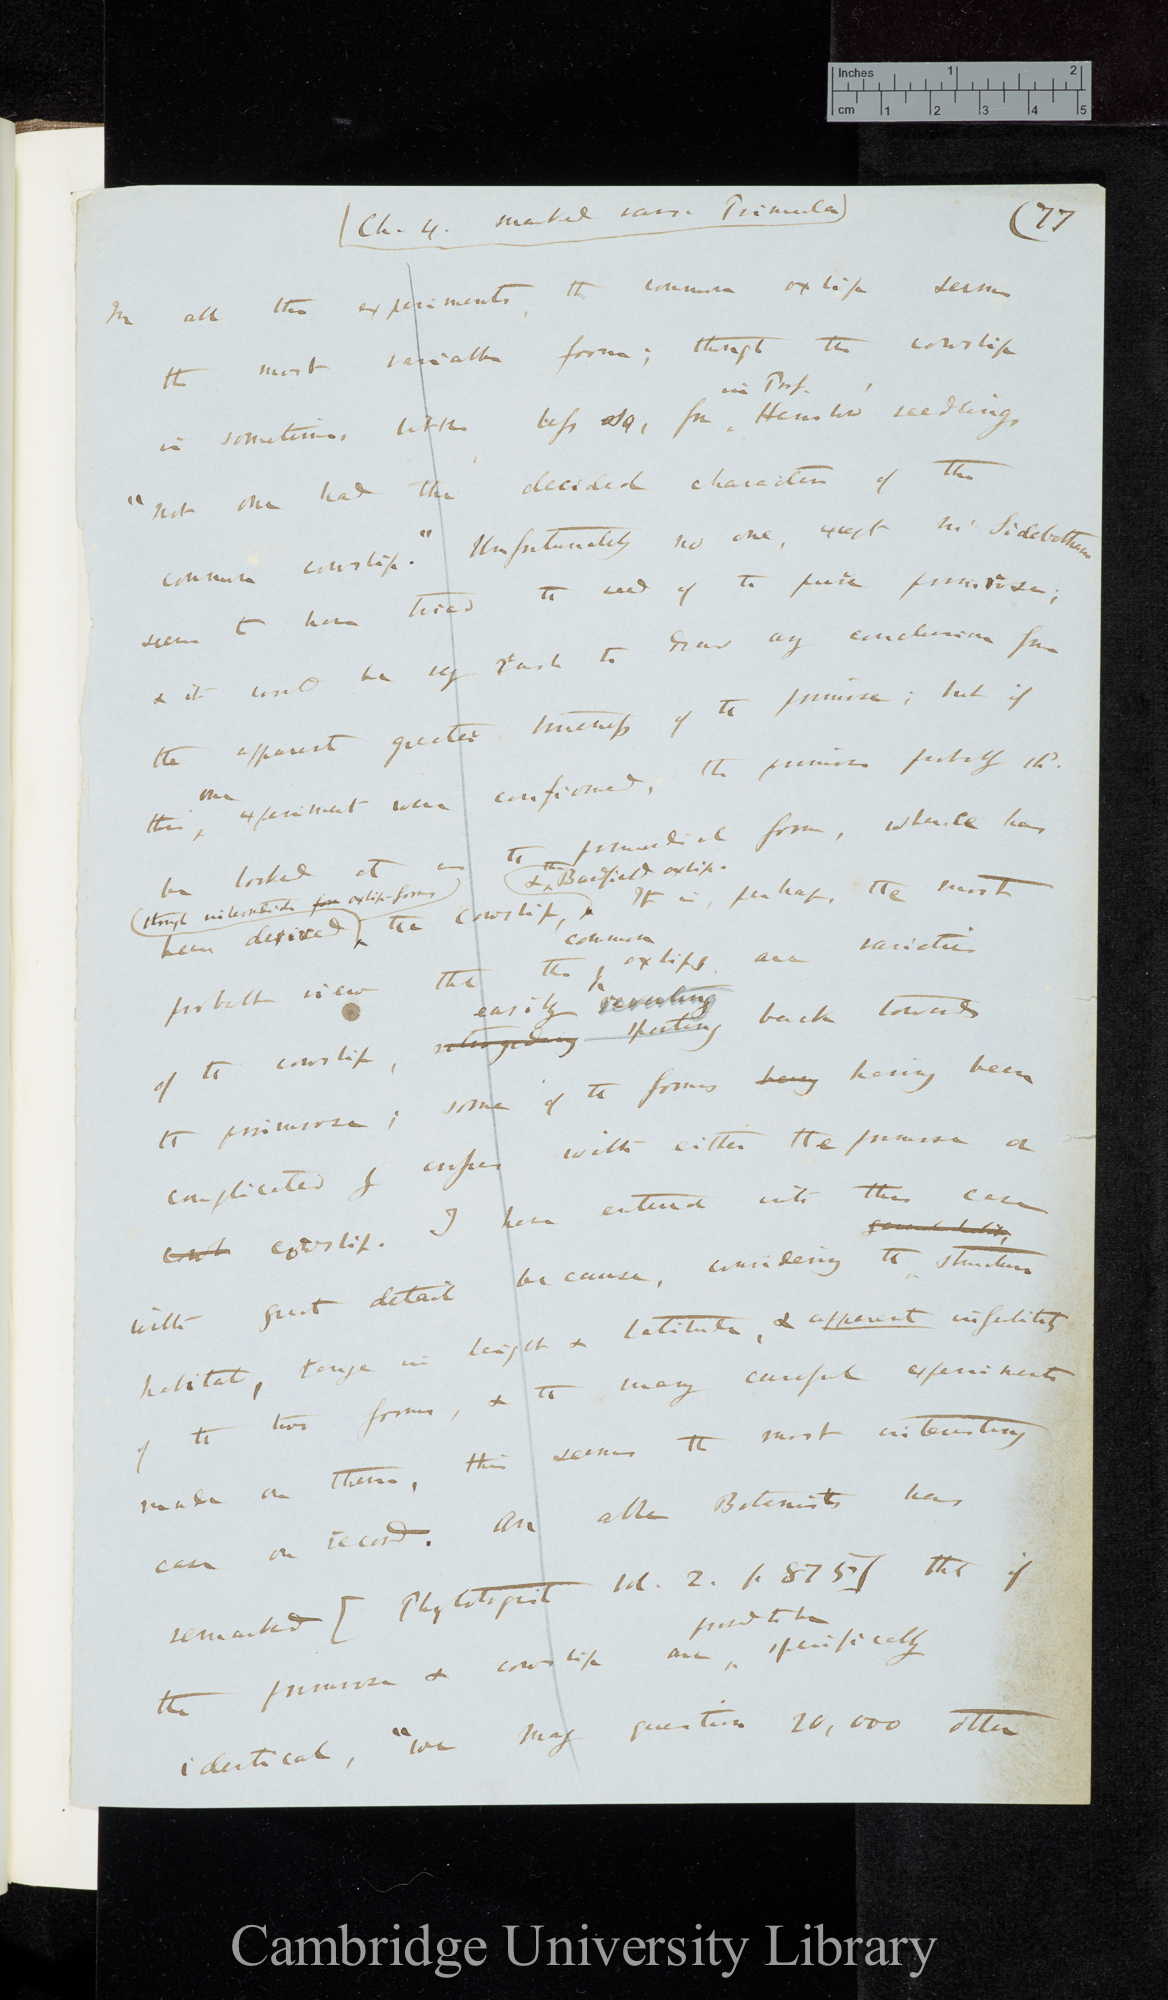 Inches 1 2
cm 1 2 3 4 5
(Ch. 4. marked vars. Primula)
(77
In all the experiments, the common oxlip seems
the most variable form; though the cowslip
in Prof.
is sometimes little less so, for Henslow' seedlings
"not one had the decided character of the
common cowslip." Unfortunately no one, except Mr Sidebotham
seems to have tried the seed of the pure primrose;
& it would be very rash to draw any conclusion from
the apparent greater trueness of the primrose; but if
one
this experiment were confirmed, the primrose probably shd.
be looked at as the primordial form, whence has
(though intermediate oxlip-forms) (& the Bardfield oxlip.
been derived the cowslip, It is, perhaps, the most
common
probable view that the oxlips are varieties
easily reverting
of the cowslip, retrograding sporting back towards
the primrose; some of the forms having having been
complicated by crosses with either the primrose or
cowslip. I have entered into this case
with great detail because, considering the structure
habitat, range in height & latitude, & apparent infertility
of the two forms, & the many careful experiments
made on them, this seems the most interesting
case on record. An able Botanist has
remarked [Phytologist Vol. 2. p. 875] that if
proved to be
the primrose & cowslip are specifically
identical, "we may question 20,000 other
Cambridge University Library